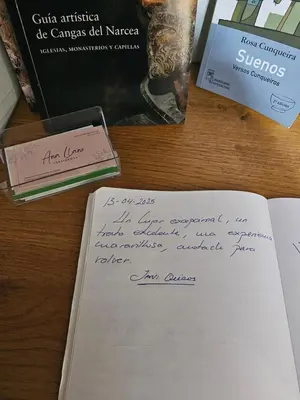 Guía artística
de Cangas del Narcea
IGLESIAS, MONASTERIOS Y CAPILLAS
Rosa Cunqueira
Suenos
Versos Cunqueiros
2ª edición
Ana Llano
13-04-2025
Un lugar excepcional, un
trato excelente, una experiencia
maravillosa, para
volver.